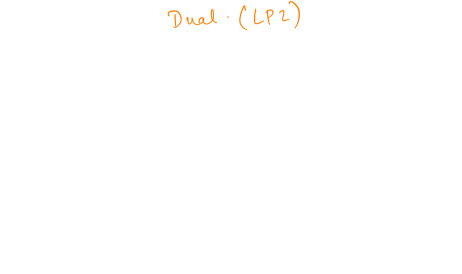 Dual. (LP2)